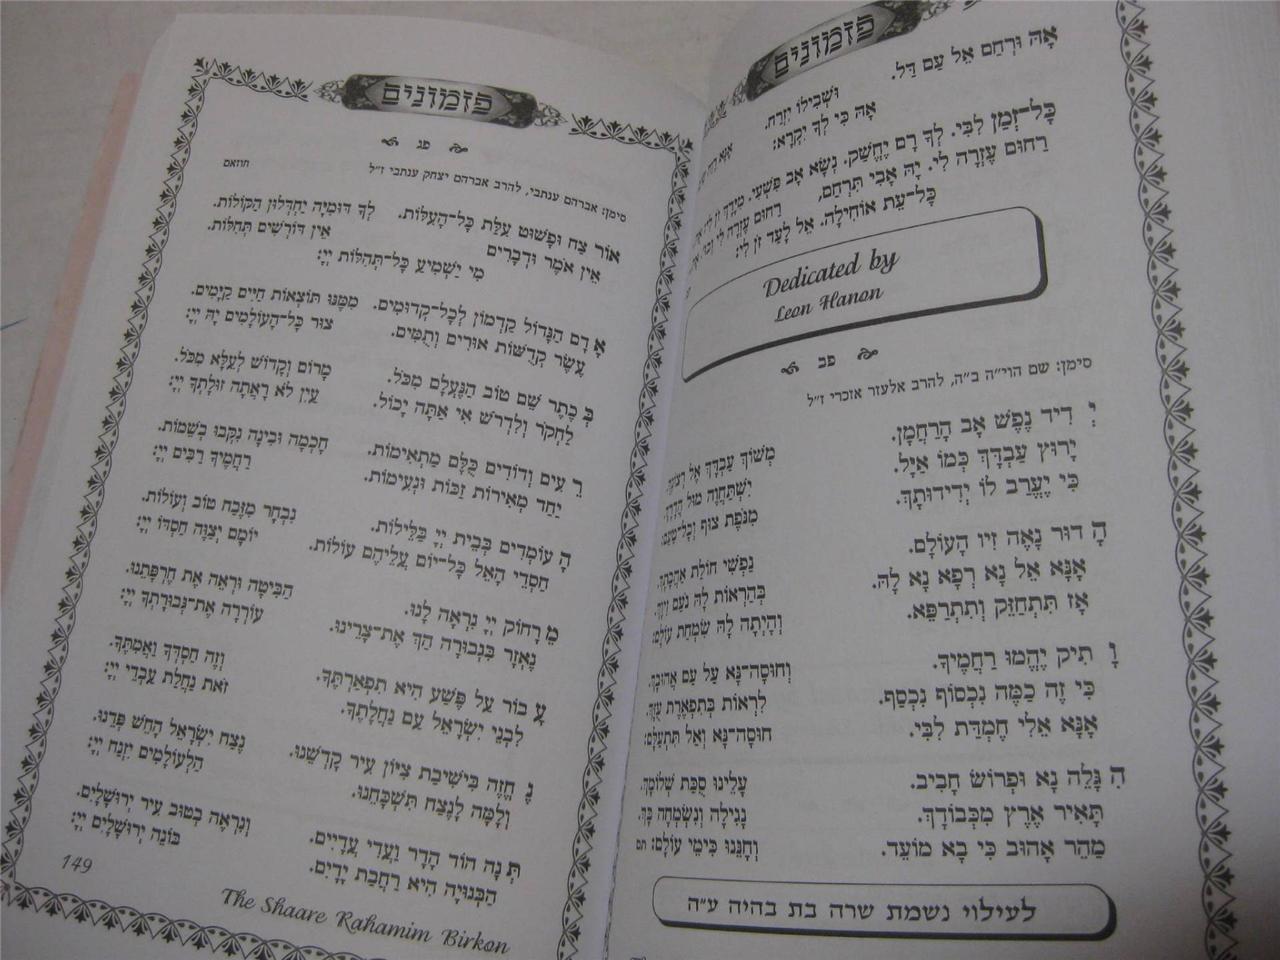 פזמונים
אָהּ וְרַחֵם אֵל עַם דַּל.
וּשְׁבִילוֹ יִזְרַח.
אָהּ כִּי לְךָ יִקְרָא:
כָּל־זְמַן לִבִּי. לְךָ רָם יֶחֱשַׁק. נְשָׂא אָב פִּשְׁעִי.
רַחוּם עֶזְרָה לִי. יָהּ אָבִי תְּרַחֵם,
כָּל־עֵת אוֹחִילָה. אֵל לָעַד זֹן לִי:
Dedicated by
Leon Hanon
פב
סימן: שם הוי״ה ב״ה, להרב אלעזר אזכרי ז״ל
יְ דִיד נֶפֶשׁ אָב הָרַחֲמָן. מְשׁוֹךְ עַבְדָּךְ אֶל רְצוֹנָךְ.
יָרוּץ עַבְדָּךְ כְּמוֹ אַיָּל. יִשְׁתַּחֲוֶה מוּל הֲדָרָךְ.
כִּי יֶעֱרַב לוֹ יְדִידוּתָךְ. מִנֹּפֶת צוּף וְכָל־טָעַם:
הָ דוּר נָאֶה זִיו הָעוֹלָם. נַפְשִׁי חוֹלַת אַהֲבָתָךְ.
אָנָּא אֵל נָא רְפָא נָא לָהּ. בְּהַרְאוֹת לָהּ נֹעַם זִיוָךְ.
אָז תִּתְחַזֵּק וְתִתְרַפֵּא. וְהָיְתָה לָהּ שִׂמְחַת עוֹלָם:
וָ תִיק יֶהֱמוּ רַחֲמֶיךָ. וְחוּסָה־נָּא עַל עַם אֲהוּבָךְ.
כִּי זֶה כַּמֶּה נִכְסוֹף נִכְסַף. לִרְאוֹת בְּתִפְאֶרֶת עֻזָּךְ.
אָנָּא אֵלִי חֶמְדַּת לִבִּי. חוּסָה־נָּא וְאַל תִּתְעַלָּם:
הִ גָּלֵה נָא וּפְרוֹשׂ חָבִיב. עָלֵינוּ סֻכַּת שְׁלוֹמָךְ.
תָּאִיר אֶרֶץ מִכְּבוֹדָךְ. נָגִילָה וְנִשְׂמְחָה בָּךְ.
מַהֵר אָהוּב כִּי בָא מוֹעֵד. וְחָנֵּנוּ כִּימֵי עוֹלָם: תם
לעילוי נשמת שרה בת בהיה ע״ה
פזמונים
פג
סימן: אברהם ענתבי, להרב אברהם יצחק ענתבי ז״ל חוזאם
אוֹר צַח וּפָשׁוּט עִלַּת כָּל־הָעִלּוֹת. לְךָ דּוּמִיָּה יַחְדְּלוּן הַקּוֹלוֹת.
אֵין אֹמֶר וּדְבָרִים אֵין דּוֹרְשִׁים תְּחִלּוֹת.
מִי יַשְׁמִיעַ כָּל־תְּהִלּוֹת יְיָ:
אָ דָם הַגָּדוֹל קַדְמוֹן לְכָל־קְדוּמִים. מִמֶּנּוּ תּוֹצְאוֹת חַיִּים קַיָּמִים.
עֶשֶׂר קְדֻשּׁוֹת אוּרִים וְתֻמִּים. צוּר כָּל־הָעוֹלָמִים יָהּ יְיָ:
בְּ כֶתֶר שֵׁם טוֹב הַנֶּעְלָם מִכֹּל. מָרוֹם וְקָדוֹשׁ לְעֵלָּא מִכֹּל.
לַחְקֹר וְלִדְרֹשׁ אִי אַתָּה יָכוֹל. עַיִן לֹא רָאָתָה זוּלָתְךָ יְיָ:
רֵ עִים וְדוֹדִים כֻּלָּם מַתְאִימוֹת. חָכְמָה וּבִינָה נִקְּבוּ בְשֵׁמוֹת.
יַחַד מְאִירוֹת זַכּוֹת וּנְעִימוֹת. רַחֲמֶיךָ רַבִּים יְיָ:
הָ עוֹמְדִים בְּבֵית יְיָ בַּלֵּילוֹת. נִבְחָר מִזֶּבַח טוֹב וְעוֹלוֹת.
חַסְדֵי הָאֵל כָּל־יוֹם עֲלֵיהֶם עוֹלוֹת. יוֹמָם יְצַוֶּה חַסְדּוֹ יְיָ:
מֵ רָחוֹק יְיָ נִרְאָה לָנוּ. הַבִּיטָה וּרְאֵה אֶת חֶרְפָּתֵנוּ.
נֶאְזָר בִּגְבוּרָה הַךְ אֶת־צָרֵינוּ. עוֹרְרָה אֶת־גְּבוּרָתְךָ יְיָ:
עֲ בוֹר עַל פֶּשַׁע הִיא תִפְאַרְתֶּךָ. וְזֶה חַסְדְּךָ וַאֲמִתֶּךָ.
לִבְנֵי יִשְׂרָאֵל עַם נַחֲלָתֶךָ. זֹאת נַחֲלַת עַבְדֵי יְיָ:
נֶ חֱזֶה בִּישִׁיבַת צִיּוֹן עִיר קָדְשֵׁנוּ. נֶצַח יִשְׂרָאֵל הָחֵשׁ פְּדֵנוּ.
וְלָמָּה לָנֶצַח תִּשְׁכָּחֵנוּ. הַלְעוֹלָמִים יִזְנַח יְיָ:
תְּ נָה הוֹד הָדָר וַעֲדִי עֲדָיִים. וְנִרְאֶה בְּטוּב עִיר יְרוּשָׁלַיִם.
הַבְּנוּיָה הִיא רַחֲבַת יָדָיִם. בּוֹנֵה יְרוּשָׁלַיִם יְיָ:
149
The Shaare Rahamim Birkon